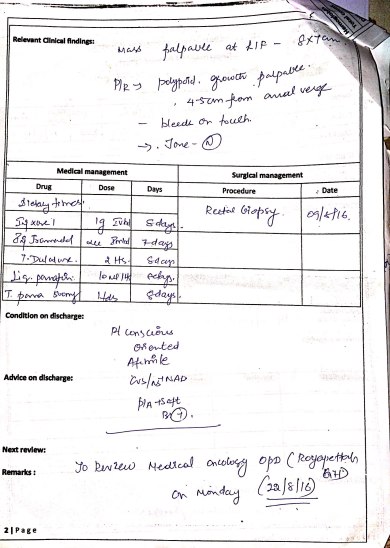 Relevant Clinical findings:
Mass palpable at RIF - 8x7cm
P/R → polypoid growth palpable.
4-5cm from anal verge
- bleeds on touch.
→ Tone - N
Medical management Surgical management
Drug Dose Days Procedure Date
Rectal Biopsy. 09/8/16.
1g IVBD 5 days
Inj Tramadol IMBD 7 days
T. Dulcolax 2 HS. 5 days
Liq. paraffin 10 ml HS days.
T. 4ds 8 days
Condition on discharge:
Pt conscious
Oriented
Afebrile
Advice on discharge: CVS/RS NAD
P/A → soft
BS +.
Next review:
Remarks : To Review Medical oncology OPD (Royapettah
GH)
on Monday (22/8/16)
2 | Page